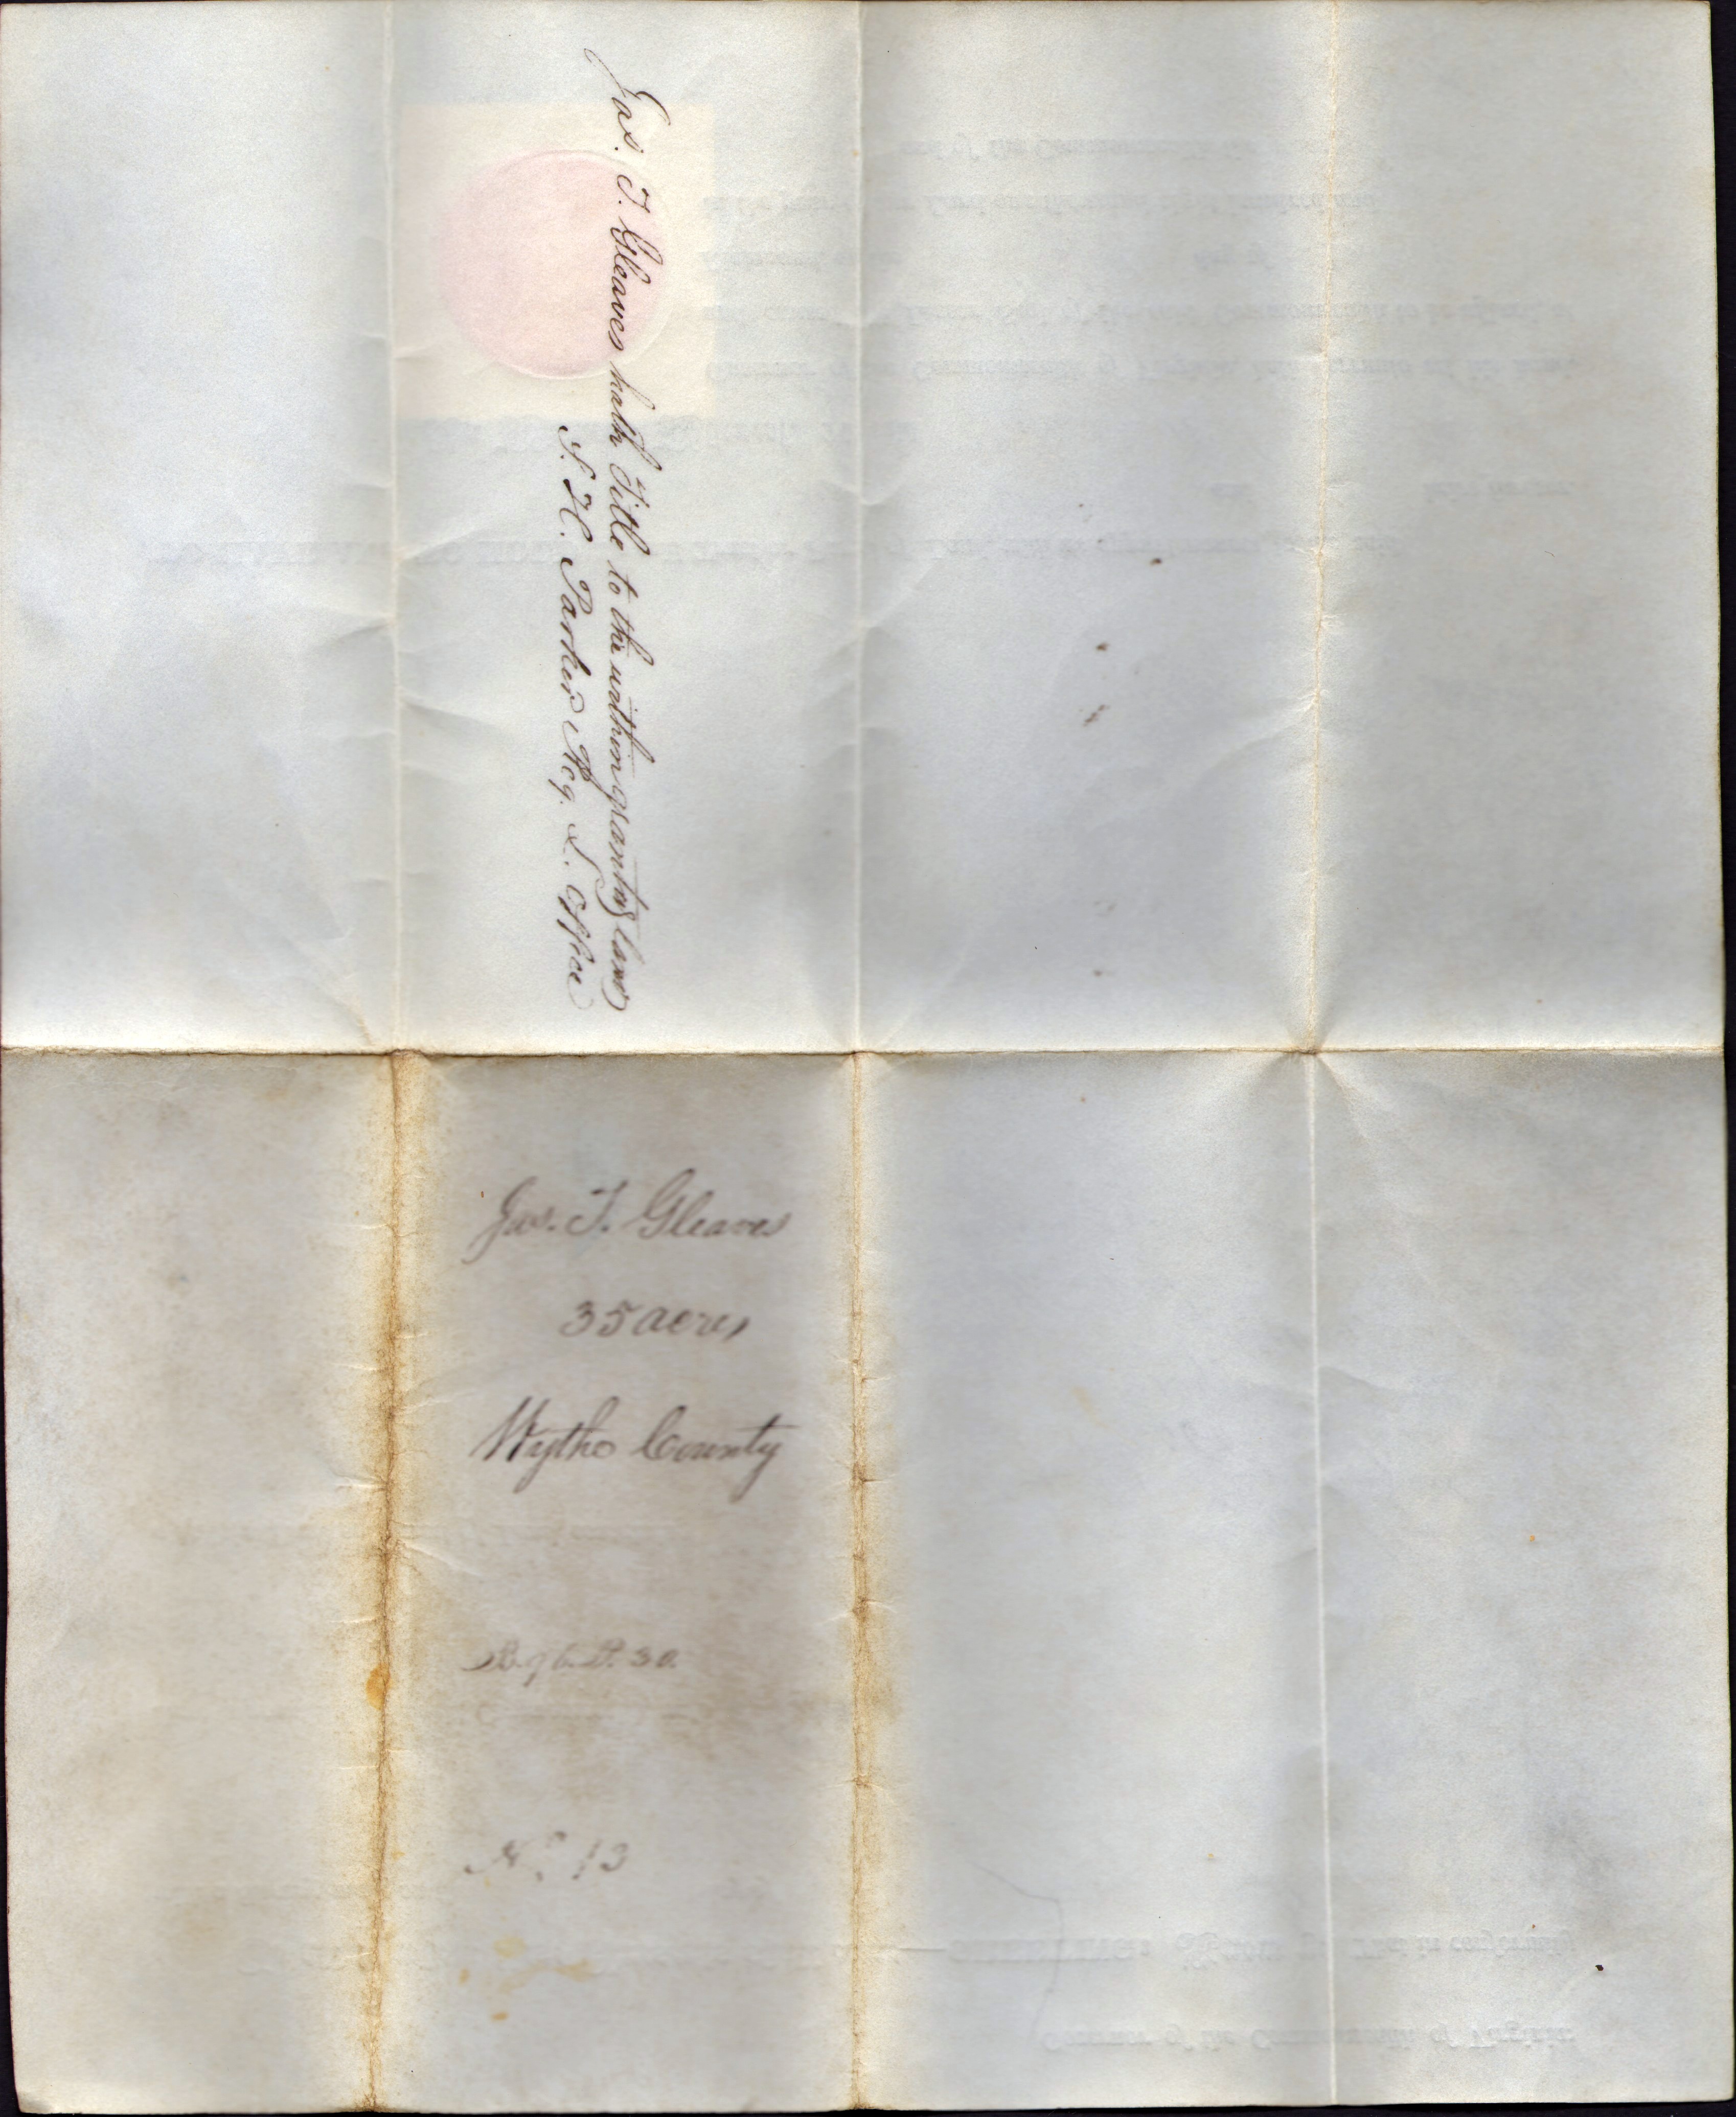 Jas. T. Gleaves hath Title to the within granting land
S. H. Parker Reg. L. Office
Jas. T. Gleaves
35 acres
Wythe County
30.
No. 13